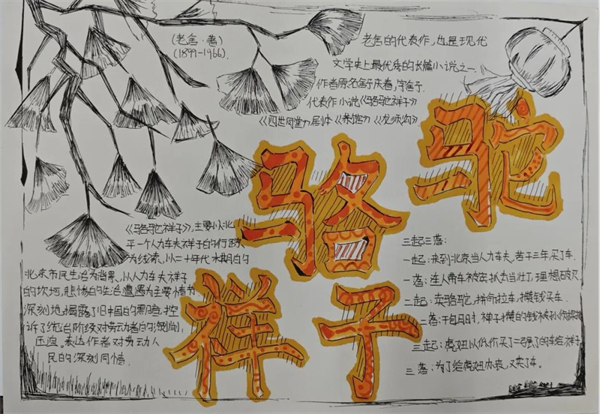 (老舍·著)
(1899-1966)
老舍的代表作,也是现代
文学史上最优秀的长篇小说之一
作者原名舒庆春,字舍予
代表作小说《骆驼祥子》
《四世同堂》剧本《茶馆》《龙须沟》
骆驼
祥子
《骆驼祥子》,主要以北
一个人力车夫祥子的行
为线索,以二十年代末期的
北京市民生活为背景,以人力车夫祥子
的坎坷、悲惨的生活遭遇为主要情节
深刻地揭露了旧中国的黑暗,控
诉了统治阶级对劳动者的
压迫,表达作者对劳动人
民的深刻同情
三起三落:
一起:来到北京当人力车夫,苦干三年,买车
一落:连人带车被宪兵抓去当壮丁,理想破灭
二起:卖骆驼,拼命拉车,攒钱买车
二落:干包月时,祥子攒的钱被孙侦探
三起:虎妞以低价买了二强子的车给祥子
三落:为了给虎妞办丧,又卖了车。